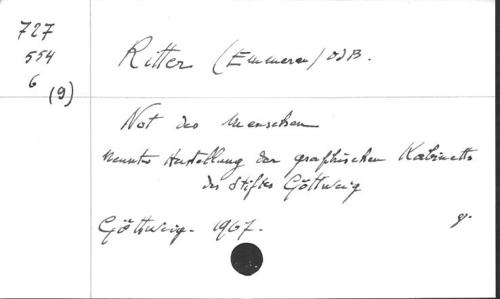 727
554
6
(9)
Ritter (Emmeran) OSB.
Not des Menschen
Neunte Austellung der graphischen Kabinetts
des Stiftes Göttweig
Göttweig. 1967.